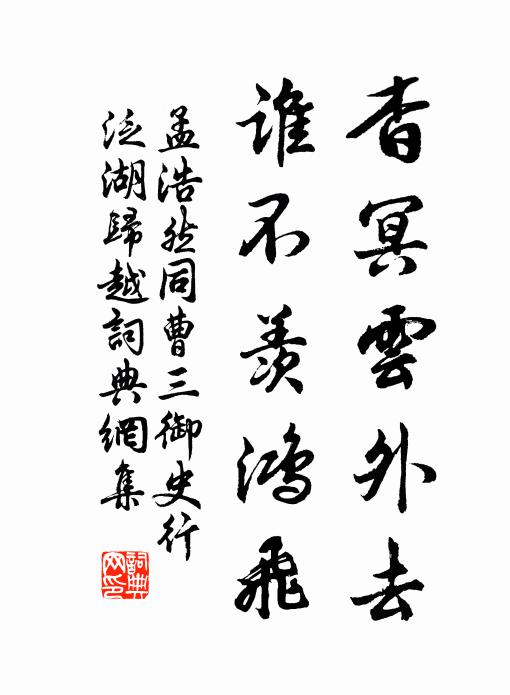 杳冥雲外去
誰不羨鴻飛
孟浩然同曹三御史行
泛湖歸越詞典網集
詞典
网印